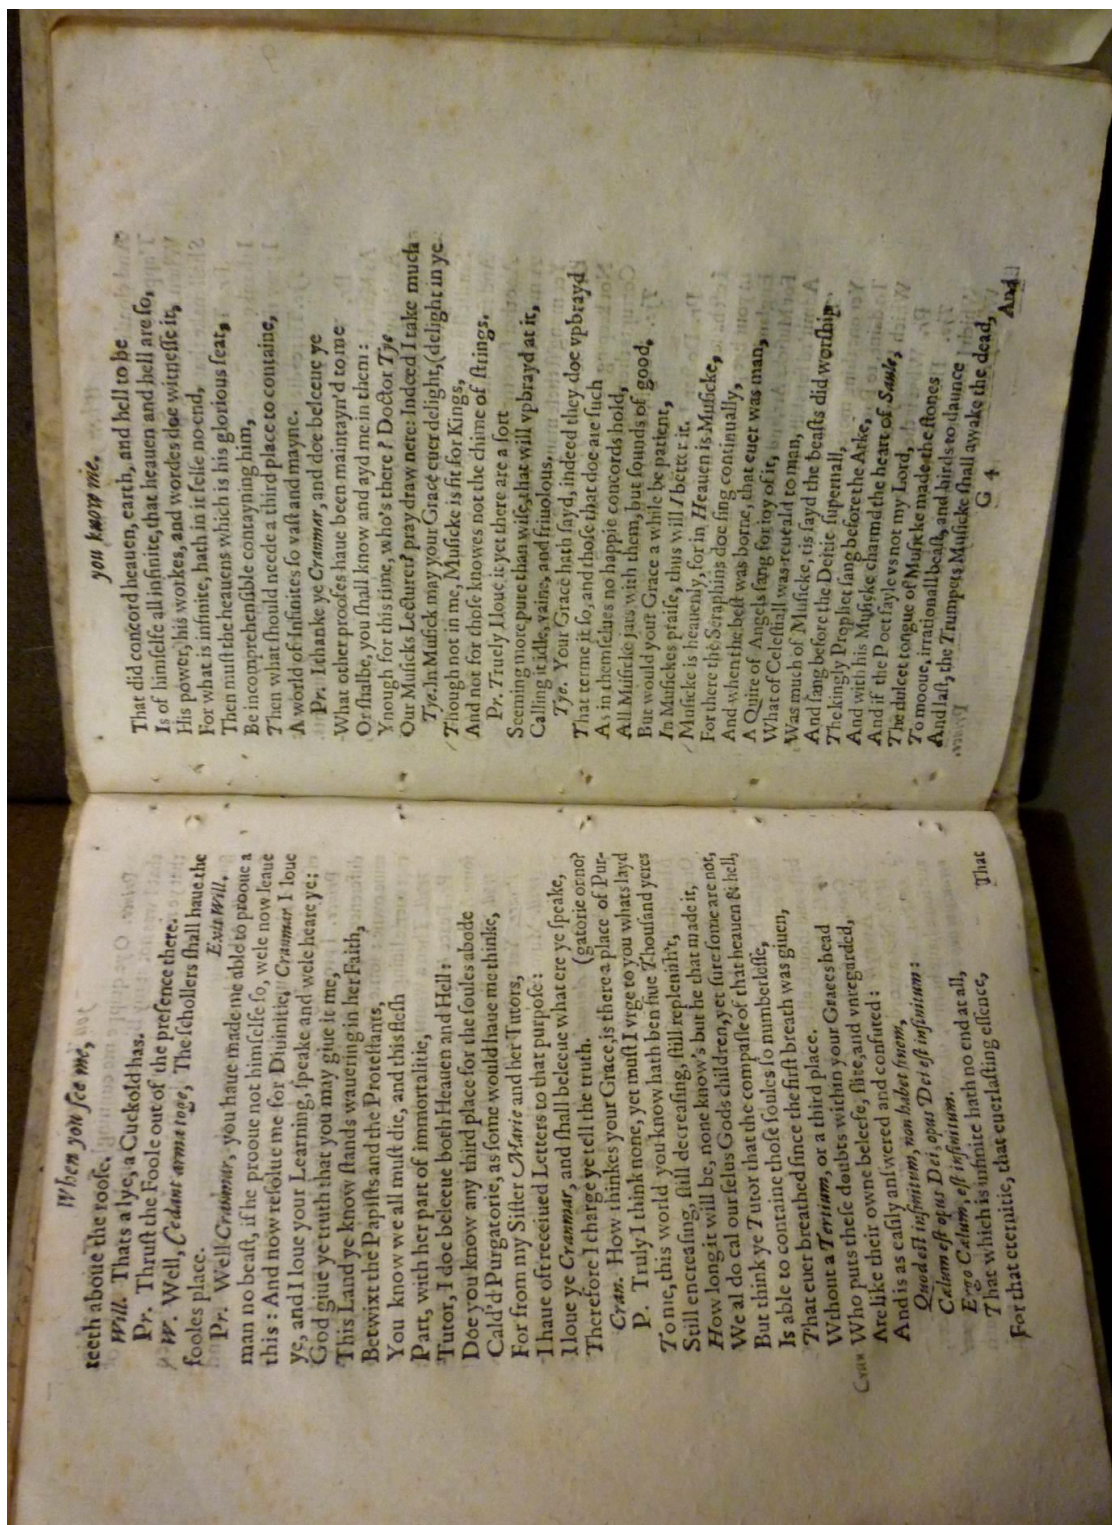 When you see me,
teeth aboue the roofe.
Will. Thats a lye, a Cuckold has.
Pr. Thrust the Foole out of the presence there.
W. Well, Cedant arma togæ, The schollers shall haue the
fooles place. Exit Will.
Pr. Well Cranmar, you haue made me able to prooue a
man no beast, if he prooue not himselfe so, wele now leaue
this: And now resolue me for Diuinitie, Cranmar I loue
ye, and I loue your Learning, speake and wele heare ye:
God giue ye truth that you may giue it me,
This Land ye know stands wauering in her Faith,
Betwixt the Papists and the Protestants,
You know we all must die, and this flesh
Part, with her part of immortalitie,
Tutor, I doe beleeue both Heauen and Hell:
Doe you know any third place for the soules abode
Cald'd Purgatorie, as some would haue me thinke,
For from my Sister Marie and her Tutors,
I haue oft receiued Letters to that purpose:
I loue ye Cranmar, and shall beleeue what ere ye speake,
Therefore I charge ye tell the truth. (gatorie or no?
Cran. How thinkes your Grace, is there a place of Pur-
P. Truly I think none, yet must I vrge to you whats layd
To me, this world you know hath ben fiue Thousand yeres
Still encreasing, still decreasing, still replenish't,
How long it will be, none know's but he that made it,
We al do cal our selus Gods children, yet sure some are not,
But think ye Tutor that the compasse of that heauen & hell,
Is able to containe those soules so numberlesse,
That euer breathed since the first breath was giuen,
Without a Tertium, or a third place.
Cran Who puts these doubts within your Graces head
Are like their owne beleefe, slite, and vnregarded,
And is as easily answered and confuted:
Quod est infinitum, non habet finem,
Cælum est opus Dei, opus Dei est infinitum:
Ergo Cælum, est infinitum.
That which is infinite hath no end at all,
For that eternitie, that euerlasting essence,
That
you know me.
That did concord heauen, earth, and hell to be
Is of himselfe all infinite, that heauen and hell are so,
His power, his workes, and wordes doe witnesse it,
For what is infinite, hath in it selfe no end,
Then must the heauens which is his glorious seat,
Be incomprehensible contayning him,
Then what should neede a third place to containe,
A world of Infinites so vast and mayne.
Pr. I thanke ye Cranmar, and doe beleeue ye
What other proofes haue been maintayn'd to me
Or shalbe, you shall know and ayd me in them:
Ynough for this time, who's there? Doctor Tye
Our Musicks Lecturer? pray draw nere: Indeed I take much
Tye. In Musick may your Grace euer delight, (delight in ye
Though not in me, Musicke is fit for Kings,
And not for those knowes not the chime of strings.
Pr. Truely I loue it, yet there are a sort
Seeming more pure than wise, that will vpbrayd at it,
Calling it idle, vaine, and friuolous.
Tye. Your Grace hath sayd, indeed they doe vpbrayd
That terme it so, and those that doe are such
As in themselues no happie concords hold,
All Musicke jars with them, but sounds of good,
But would your Grace a while be patient,
In Musickes praise, thus will I better it.
Musicke is heauenly, for in Heauen is Musicke,
For there the Seraphins doe sing continually,
And when the best was borne, that euer was man,
A Quire of Angels sang for ioy of it,
What of Celestiall was reueald to man,
Was much of Musicke, tis sayd the beasts did worship
And sang before the Deitie supernall,
The kingly Prophet sang before the Arke,
And with his Musicke charmd the heart of Saule,
And if the Poet fayle vs not my Lord,
The dulcet tongue of Musicke made the stones
To mooue, irrationall beast, and birds to daunce
And last, the Trumpets Musicke shall awake the dead,
G 4 And